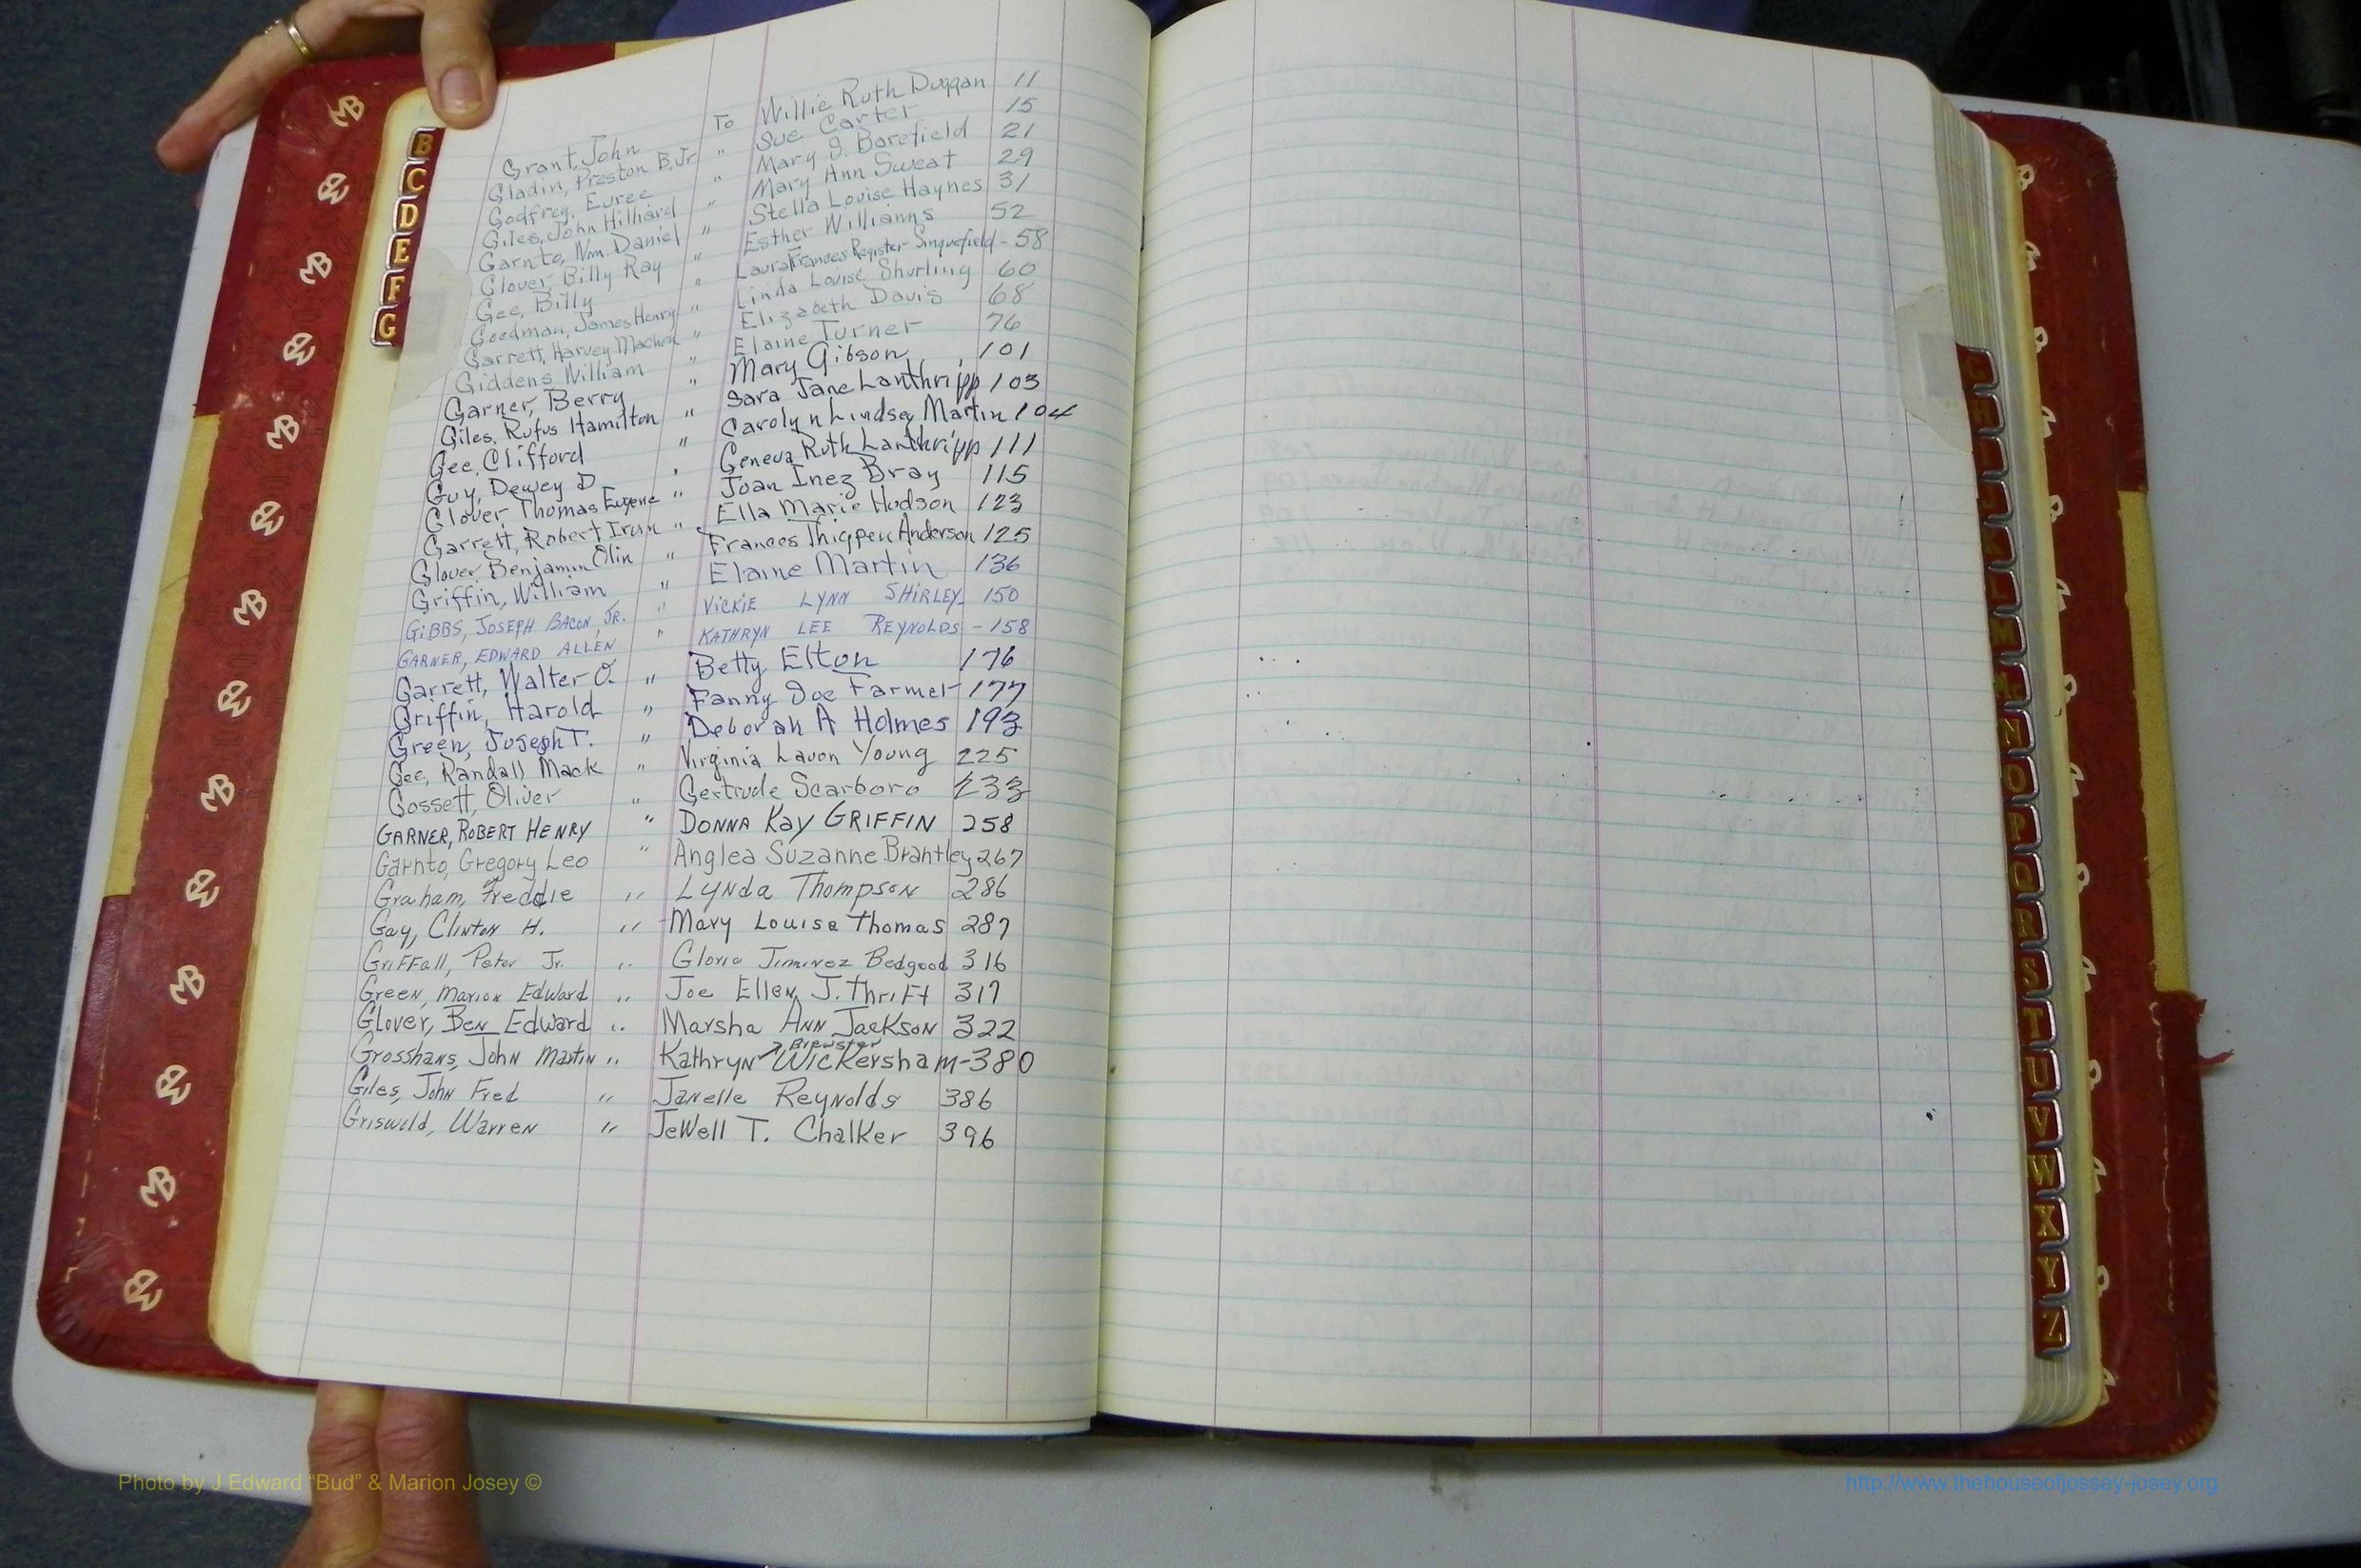 Grant, John To Willie Ruth Duggan 11
Gladin, Preston B. Jr " Sue Carter 15
Godfrey, Euree " Mary S. Barefield 21
Giles, John Hilliard " Mary Ann Sweat 29
Garnto, Wm. Daniel " Stella Louise Haynes 31
Glover, Billy Ray " Esther Williams 52
Gee, Billy " Laura Frances Register Sinquefield - 58
Goodman, James Henry " Linda Louise Shurling 60
Garrett, Harvey Machen " Elizabeth Davis 68
Giddens William " Elaine Turner 76
Garner, Berry " Mary Gibson 101
Giles, Rufus Hamilton " Sara Jane Lanthripp 103
Gee, Clifford " Carolyn Lindsey Martin 104
Guy, Dewey D " Geneva Ruth Lanthripp 111
Glover, Thomas Eugene " Joan Inez Bray 115
Garrett, Robert Irvin " Ella Marie Hodson 123
Glover Benjamin Olin " Frances Thigpen Anderson 125
Griffin, William " Elaine Martin 136
GIBBS, JOSEPH BACON, JR. " VICKIE LYNN SHIRLEY - 150
GARNER, EDWARD ALLEN " KATHRYN LEE REYNOLDS - 158
Garrett, Walter O. " Betty Elton 176
Griffin, Harold " Fanny Joe Farmer 177
Green, Joseph T. " Deborah A Holmes 193
Gee, Randall Mack " Virginia Lavon Young 225
Gossett, Oliver " Gertrude Scarboro 233
GARNER, ROBERT HENRY " DONNA KAY GRIFFIN 258
Garnto, Gregory Leo " Anglea Suzanne Brantley 267
Graham, Freddie " Lynda Thompson 286
Gay, Clinton H. " Mary Louise Thomas 287
Griffall, Peter Jr. " Gloria Jiminez Bedgood 316
Green, Marion Edward " Joe Ellen J. Thrift 317
Glover, Ben Edward " Marsha Ann Jackson 322
Grosshans, John Martin " Kathryn Brewster Wickersham - 380
Giles, John Fred " Janelle Reynolds 386
Griswold, Warren " Jewell T. Chalker 396
B
C
D
E
F
G
H
L
M
Mc
N
O
P
Q
R
S
T
U
V
W
X
Y
Z
Photo by J Edward “Bud” & Marion Josey ©
http://www.thehouseofjossey-josey.org